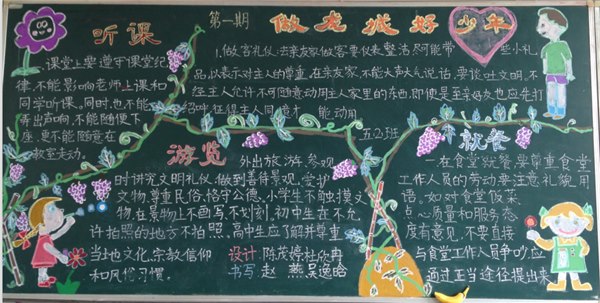 第一期
做龙城好少年
听课
课堂上要遵守课堂纪
律,不能影响老师上课和
同学听课。同时,也不能
弄出声响,不能随便下
座,更不能随意在
教室走动。
1.做客礼仪:去亲友家做客要仪表整洁,尽可能带一些小礼
品,以表示对主人的尊重,在亲友家,不能大声大气说话,要谈吐文明,不
经主人允许,不可随意动用主人家里的东西,即使是至亲好友也应先打
招呼,征得主人同意才能动用。
五.2班
游览
外出旅游、参观
时讲究文明礼仪,做到善待景观,爱护
文物,尊重民俗,恪守公德,小学生不触摸文
物,在景物上不画写,不划刻,初中生在不允
许拍照的地方不拍照,高中生应了解并尊重
当地文化,宗教信仰
和风俗习惯。
设计:陈茂婷 杜欣冉
书写:赵燕 吴逸晗
就餐
在食堂就餐,要尊重食堂
工作人员的劳动,要注意礼貌用
语,如对食堂饭菜
点心质量和服务态
度有意见,不要直接
与食堂工作人员争吵,应
通过正当途径提出来